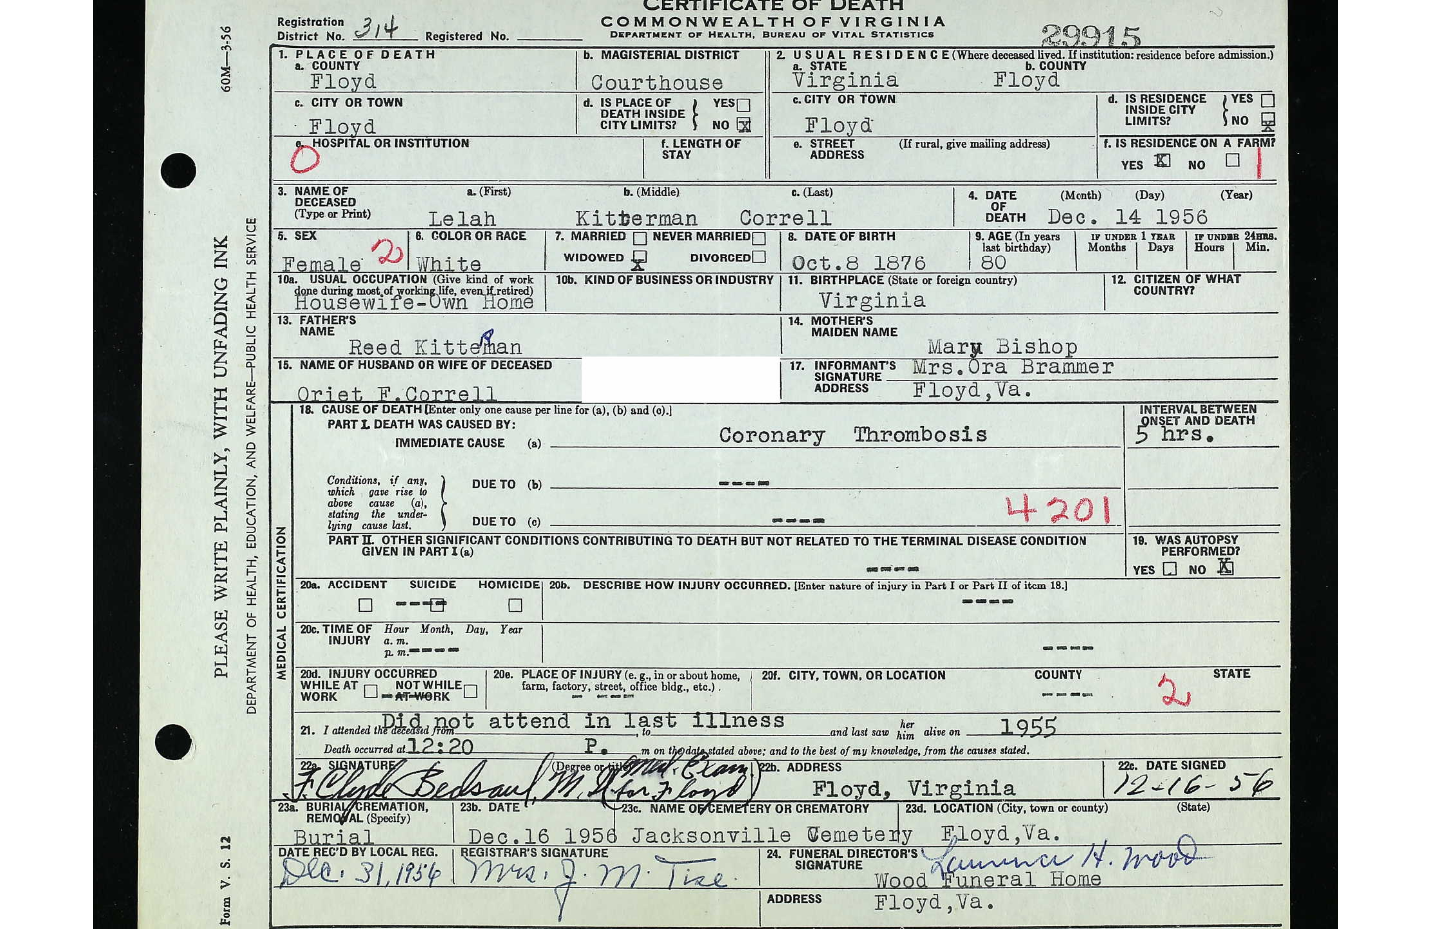 CERTIFICATE OF DEATH
COMMONWEALTH OF VIRGINIA
DEPARTMENT OF HEALTH, BUREAU OF VITAL STATISTICS
Registration District No. 314 Registered No.
29915
60M—3-56
PLEASE WRITE PLAINLY, WITH UNFADING INK
DEPARTMENT OF HEALTH, EDUCATION, AND WELFARE—PUBLIC HEALTH SERVICE
Form V. S. 12
1. PLACE OF DEATH
a. COUNTY
Floyd
b. MAGISTERIAL DISTRICT
Courthouse
2. USUAL RESIDENCE (Where deceased lived. If institution: residence before admission.)
a. STATE b. COUNTY
Virginia Floyd
c. CITY OR TOWN
Floyd
d. IS PLACE OF DEATH INSIDE CITY LIMITS? YES NO X
c. CITY OR TOWN
Floyd
d. IS RESIDENCE INSIDE CITY LIMITS? YES NO X
e. HOSPITAL OR INSTITUTION
0
f. LENGTH OF STAY
e. STREET ADDRESS (If rural, give mailing address)
f. IS RESIDENCE ON A FARM?
YES X NO 1
3. NAME OF DECEASED (Type or Print)
a. (First) b. (Middle) c. (Last)
Lelah Kitterman Correll
4. DATE OF DEATH (Month) (Day) (Year)
Dec. 14 1956
5. SEX
Female 2
6. COLOR OR RACE
White
7. MARRIED NEVER MARRIED
WIDOWED X DIVORCED
8. DATE OF BIRTH
Oct.8 1876
9. AGE (In years last birthday)
80
IF UNDER 1 YEAR
Months Days
IF UNDER 24HRS.
Hours Min.
10a. USUAL OCCUPATION (Give kind of work done during most of working life, even if retired)
Housewife-Own Home
10b. KIND OF BUSINESS OR INDUSTRY
11. BIRTHPLACE (State or foreign country)
Virginia
12. CITIZEN OF WHAT COUNTRY?
13. FATHER'S NAME
Reed Kitterman
14. MOTHER'S MAIDEN NAME
Mary Bishop
15. NAME OF HUSBAND OR WIFE OF DECEASED
Oriet F.Correll
17. INFORMANT'S SIGNATURE Mrs.Ora Brammer
ADDRESS Floyd,Va.
MEDICAL CERTIFICATION
18. CAUSE OF DEATH [Enter only one cause per line for (a), (b) and (c).]
PART I. DEATH WAS CAUSED BY:
IMMEDIATE CAUSE (a) Coronary Thrombosis
INTERVAL BETWEEN ONSET AND DEATH
5 hrs.
Conditions, if any, which gave rise to above cause (a), stating the underlying cause last.
DUE TO (b) ----
DUE TO (c) ----
4201
PART II. OTHER SIGNIFICANT CONDITIONS CONTRIBUTING TO DEATH BUT NOT RELATED TO THE TERMINAL DISEASE CONDITION GIVEN IN PART I (a)
----
19. WAS AUTOPSY PERFORMED?
YES NO X
20a. ACCIDENT SUICIDE HOMICIDE
----
20b. DESCRIBE HOW INJURY OCCURRED. [Enter nature of injury in Part I or Part II of item 18.]
----
20c. TIME OF INJURY Hour Month, Day, Year
a. m.
p. m. ----
----
20d. INJURY OCCURRED
WHILE AT WORK NOT WHILE AT WORK
20e. PLACE OF INJURY (e. g., in or about home, farm, factory, street, office bldg., etc.)
20f. CITY, TOWN, OR LOCATION COUNTY STATE
---- 2
21. I attended the deceased from Did not attend in last illness , to and last saw her him alive on 1955
Death occurred at 12:20 P. m on the date stated above; and to the best of my knowledge, from the causes stated.
22a. SIGNATURE (Degree or title)
F. Clyde Bedsaul, M.D. (Med. Exam. for Floyd)
22b. ADDRESS
Floyd, Virginia
22c. DATE SIGNED
12-16-56
23a. BURIAL, CREMATION, REMOVAL (Specify)
Burial
23b. DATE
Dec.16 1956
23c. NAME OF CEMETERY OR CREMATORY
Jacksonville Cemetery
23d. LOCATION (City, town or county) (State)
Floyd,Va.
DATE REC'D BY LOCAL REG.
Dec. 31, 1956
REGISTRAR'S SIGNATURE
Mrs. J. M. Tise.
24. FUNERAL DIRECTOR'S SIGNATURE Lawrence H. Wood
Wood Funeral Home
ADDRESS Floyd,Va.